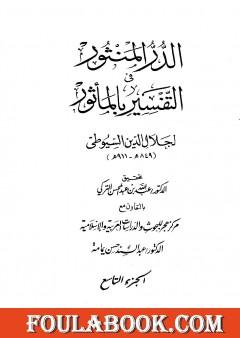 الدر المنثور
في
التفسير بالمأثور
لجلال الدين السيوطي
(٨٤٩هـ - ٩١١هـ)
تحقيق
الدكتور عبد الله بن عبد المحسن التركي
بالتعاون مع
مركز هجر للبحوث والدراسات العربية والإسلامية
الدكتور عبد السند حسن يمامة
الجزء التاسع
FOULABOOK.COM